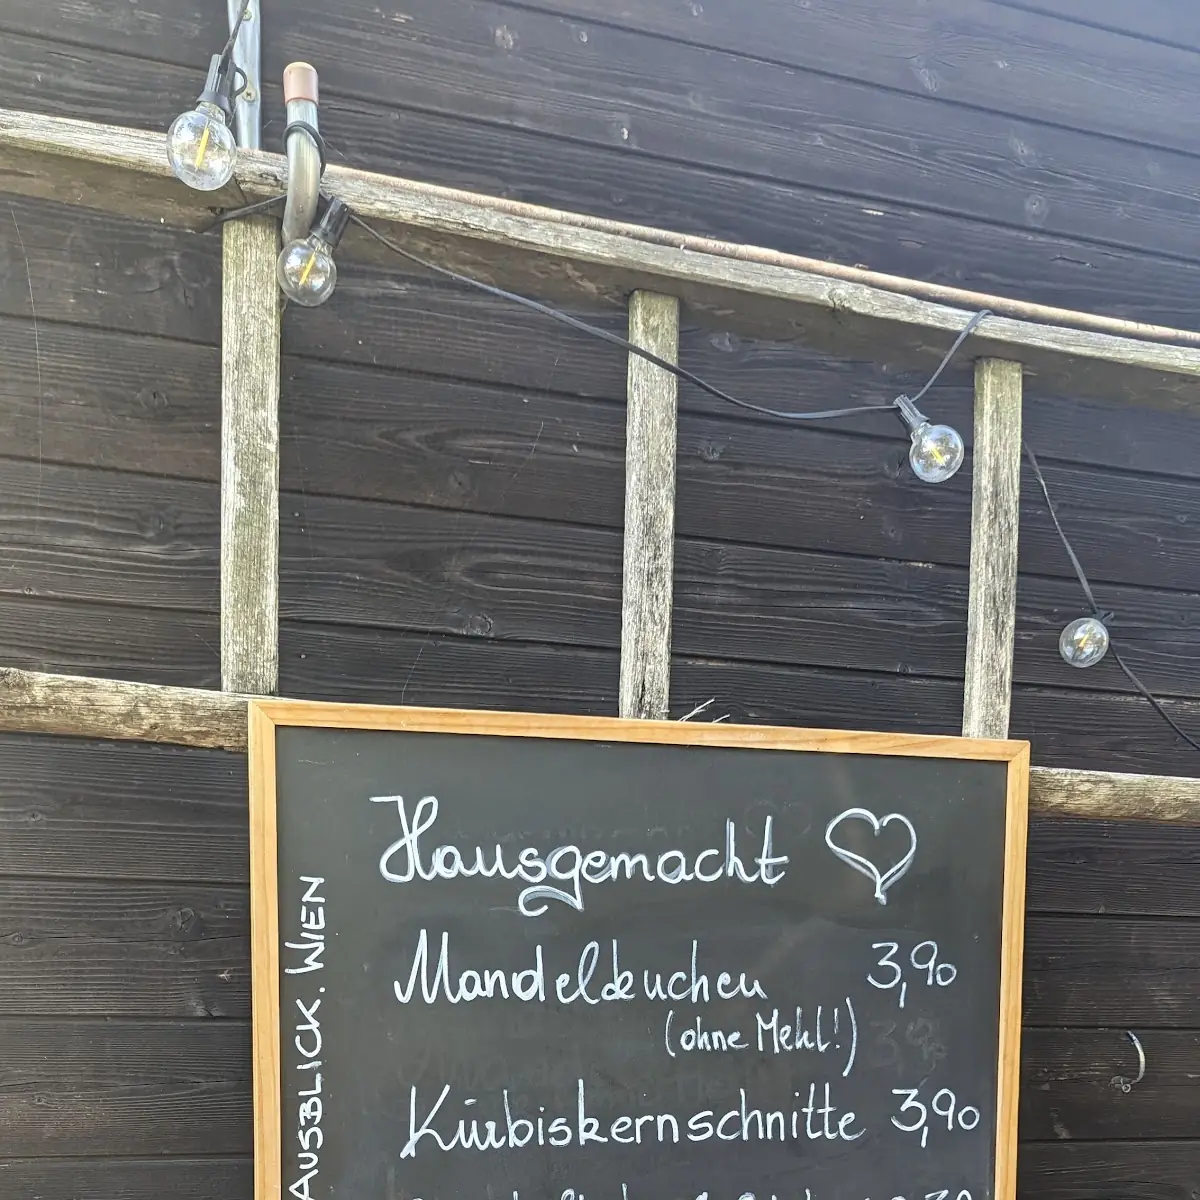 Hausgemacht
Mandelkuchen 3,90
(ohne Mehl!)
Kürbiskernschnitte 3,90
AUSBLICK. WIEN